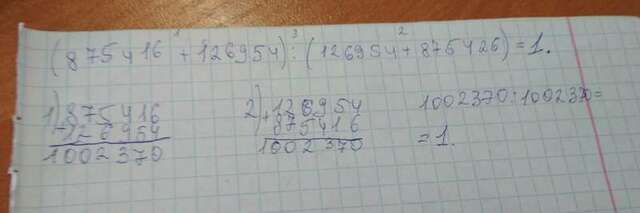 (875416 + 126954) : (126954 + 875426) = 1.
1 3 2
1) 875416
+ 126954
1002370
2) 126954
+ 875416
1002370
1002370 : 1002370 =
= 1.